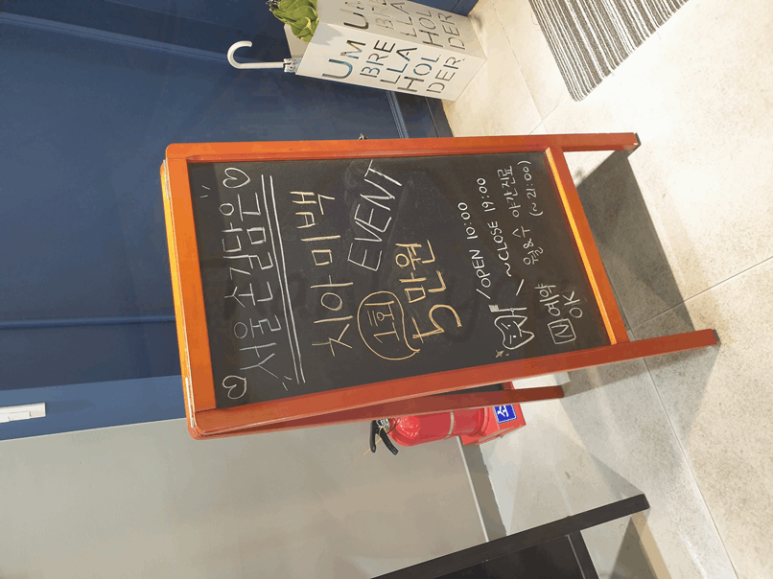 ♡서울손길담은♡
치아미백
EVENT
1회
5만원
OPEN 10:00
~CLOSE 19:00
월&수 야간진료
(~21:00)
N예약
OK
UM
BRE
LLA
HOL
DER
UM
BRE
LLA
HOL
DER
소